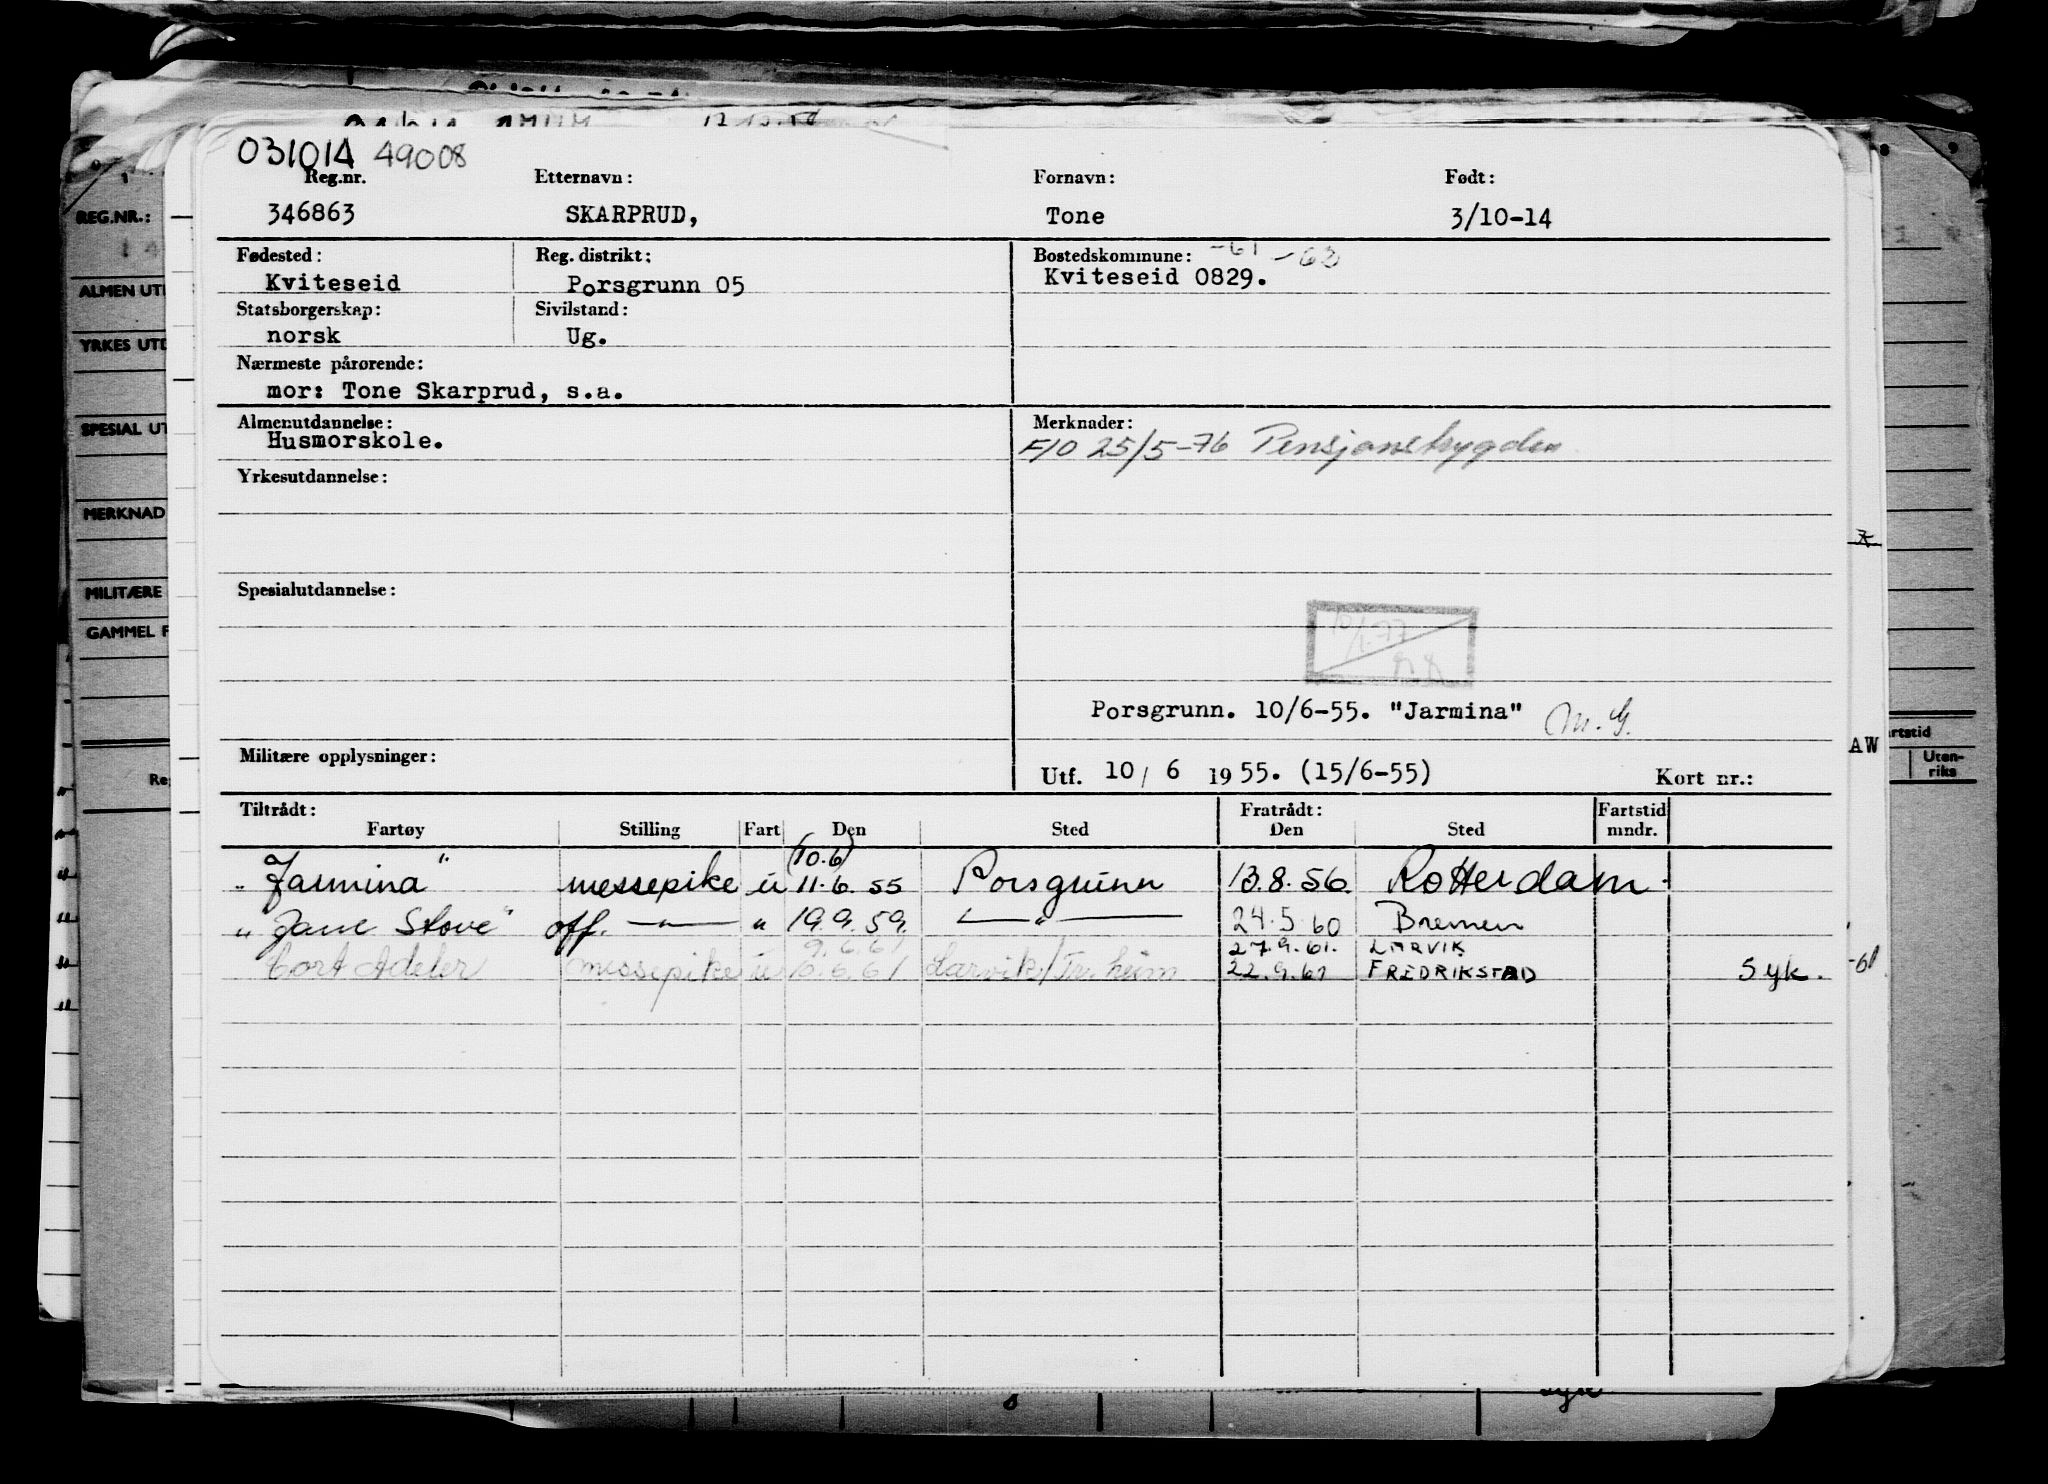 031014 49008
Reg.nr. Etternavn: Fornavn: Født:
346863 SKARPRUD, Tone 3/10-14
Fødested: Reg. distrikt: Bostedskommune: -61 -62
Kviteseid Porsgrunn 05 Kviteseid 0829.
Statsborgerskap: Sivilstand:
norsk Ug.
Nærmeste pårørende:
mor: Tone Skarprud, s.a.
Almenutdannelse: Merknader:
Husmorskole. F/O 25/5-76 Pensjonstrygden
Yrkesutdannelse:
Spesialutdannelse:
10/1-77
Porsgrunn. 10/6-55. "Jarmina" M.G.
Militære opplysninger:
Utf. 10/6 1955. (15/6-55) Kort nr.:
Tiltrådt: Fratrådt: Fartstid
Fartøy Stilling Fart Den Sted Den Sted mndr.
(10.6)
"Jarmina" messepike u 11.6.55 Porsgrunn 13.8.56. Rotterdam.
"Jane Stove" off. —"— " 19.9.59. —"— 24.5.60 Bremen
9.6.61 27.9.61. LARVIK
Cort Adeler messepike u 6.6.61 Larvik/Tr.heim 22.9.61 FREDRIKSTAD Syk.
REG.NR.:
ALMEN UT
YRKES UTD
SPESIAL UT
MERKNAD
MILITÆRE
GAMMEL F
Re
AW
artstid
Uten-
riks